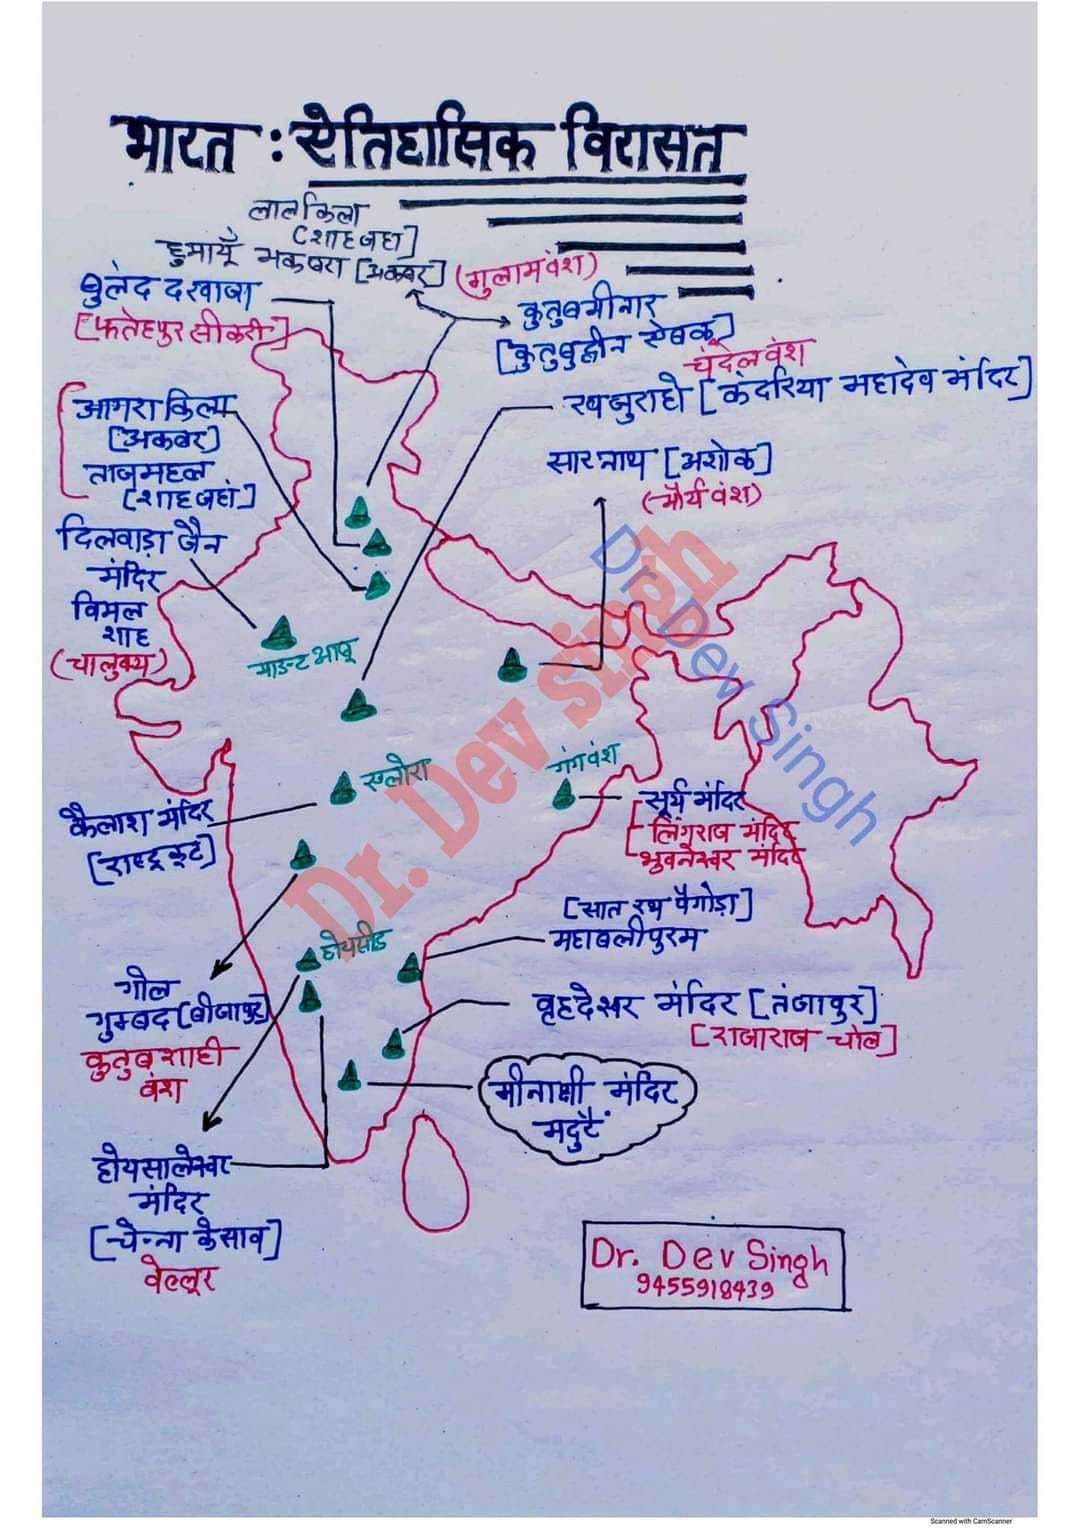 भारत : ऐतिहासिक विरासत
लाल किला
[शाहजहा]
हुमायूँ मकबरा [अकबर]
(गुलाम वंश)
बुलंद दरवाजा
[फतेहपुर सीकरी]
कुतुबमीनार
[कुतुबुद्दीन ऐबक]
चंदेल वंश
खजुराहो [कंदरिया महादेव मंदिर]
आगरा किला
[अकबर]
ताजमहल
[शाहजहां]
सारनाथ [अशोक]
(मौर्य वंश)
दिलवाड़ा जैन
मंदिर
विमल
शाह
(चालुक्य)
माउन्ट आबू
एलोरा
गंग वंश
कैलाश मंदिर
[राष्ट्रकूट]
सूर्य मंदिर
लिंगराज मंदिर
भुवनेश्वर मंदिर
[सात रथ पैगोड़ा]
महाबलीपुरम
होयसीड
गोल
गुम्बद [बीजापुर]
कुतुबशाही
वंश
वृहदेश्वर मंदिर [तंजापुर]
[राजाराज चोल]
मीनाक्षी मंदिर
मदुरै
होयसालेश्वर
मंदिर
[चेन्ना केसाव]
वेल्लूर
Dr. Dev Singh
9455918439
Dr. Dev singh
Dr. Dev Singh
Scanned with CamScanner